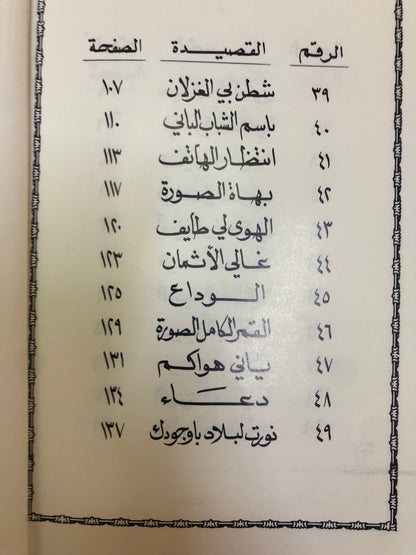 الرقم القصيدة الصفحة
٣٩ شطن بي الغزلان ١٠٧
٤٠ باسم الشاب الباني ١١٠
٤١ انتظار الهاتف ١١٣
٤٢ بهاة الصورة ١١٧
٤٣ الهوى لي طايف ١٢٠
٤٤ غالي الأثمان ١٢٣
٤٥ الوداع ١٢٥
٤٦ القمر الكامل الصورة ١٢٩
٤٧ ياني هواكم ١٣١
٤٨ دعاء ١٣٤
٤٩ نورت لبلاد باوجودك ١٣٧